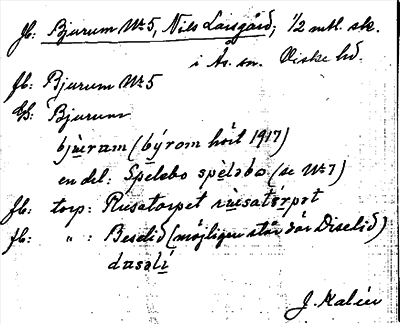 fb: Bjurum Nr 5, Nils Larsgård; 1/2 mtl. sk.
i Ås sn. Viske hd.
fb: Bjurum Nr 5
Bjurum
bju̇ram (býrom hört 1917)
en del: Spelabo spèlabo (se Nr 7)
fb: torp: Rusatorpet rùsatårpət
fb: " : Beselid (möjligen står där Diselid)
dasəlí
J. Kalén